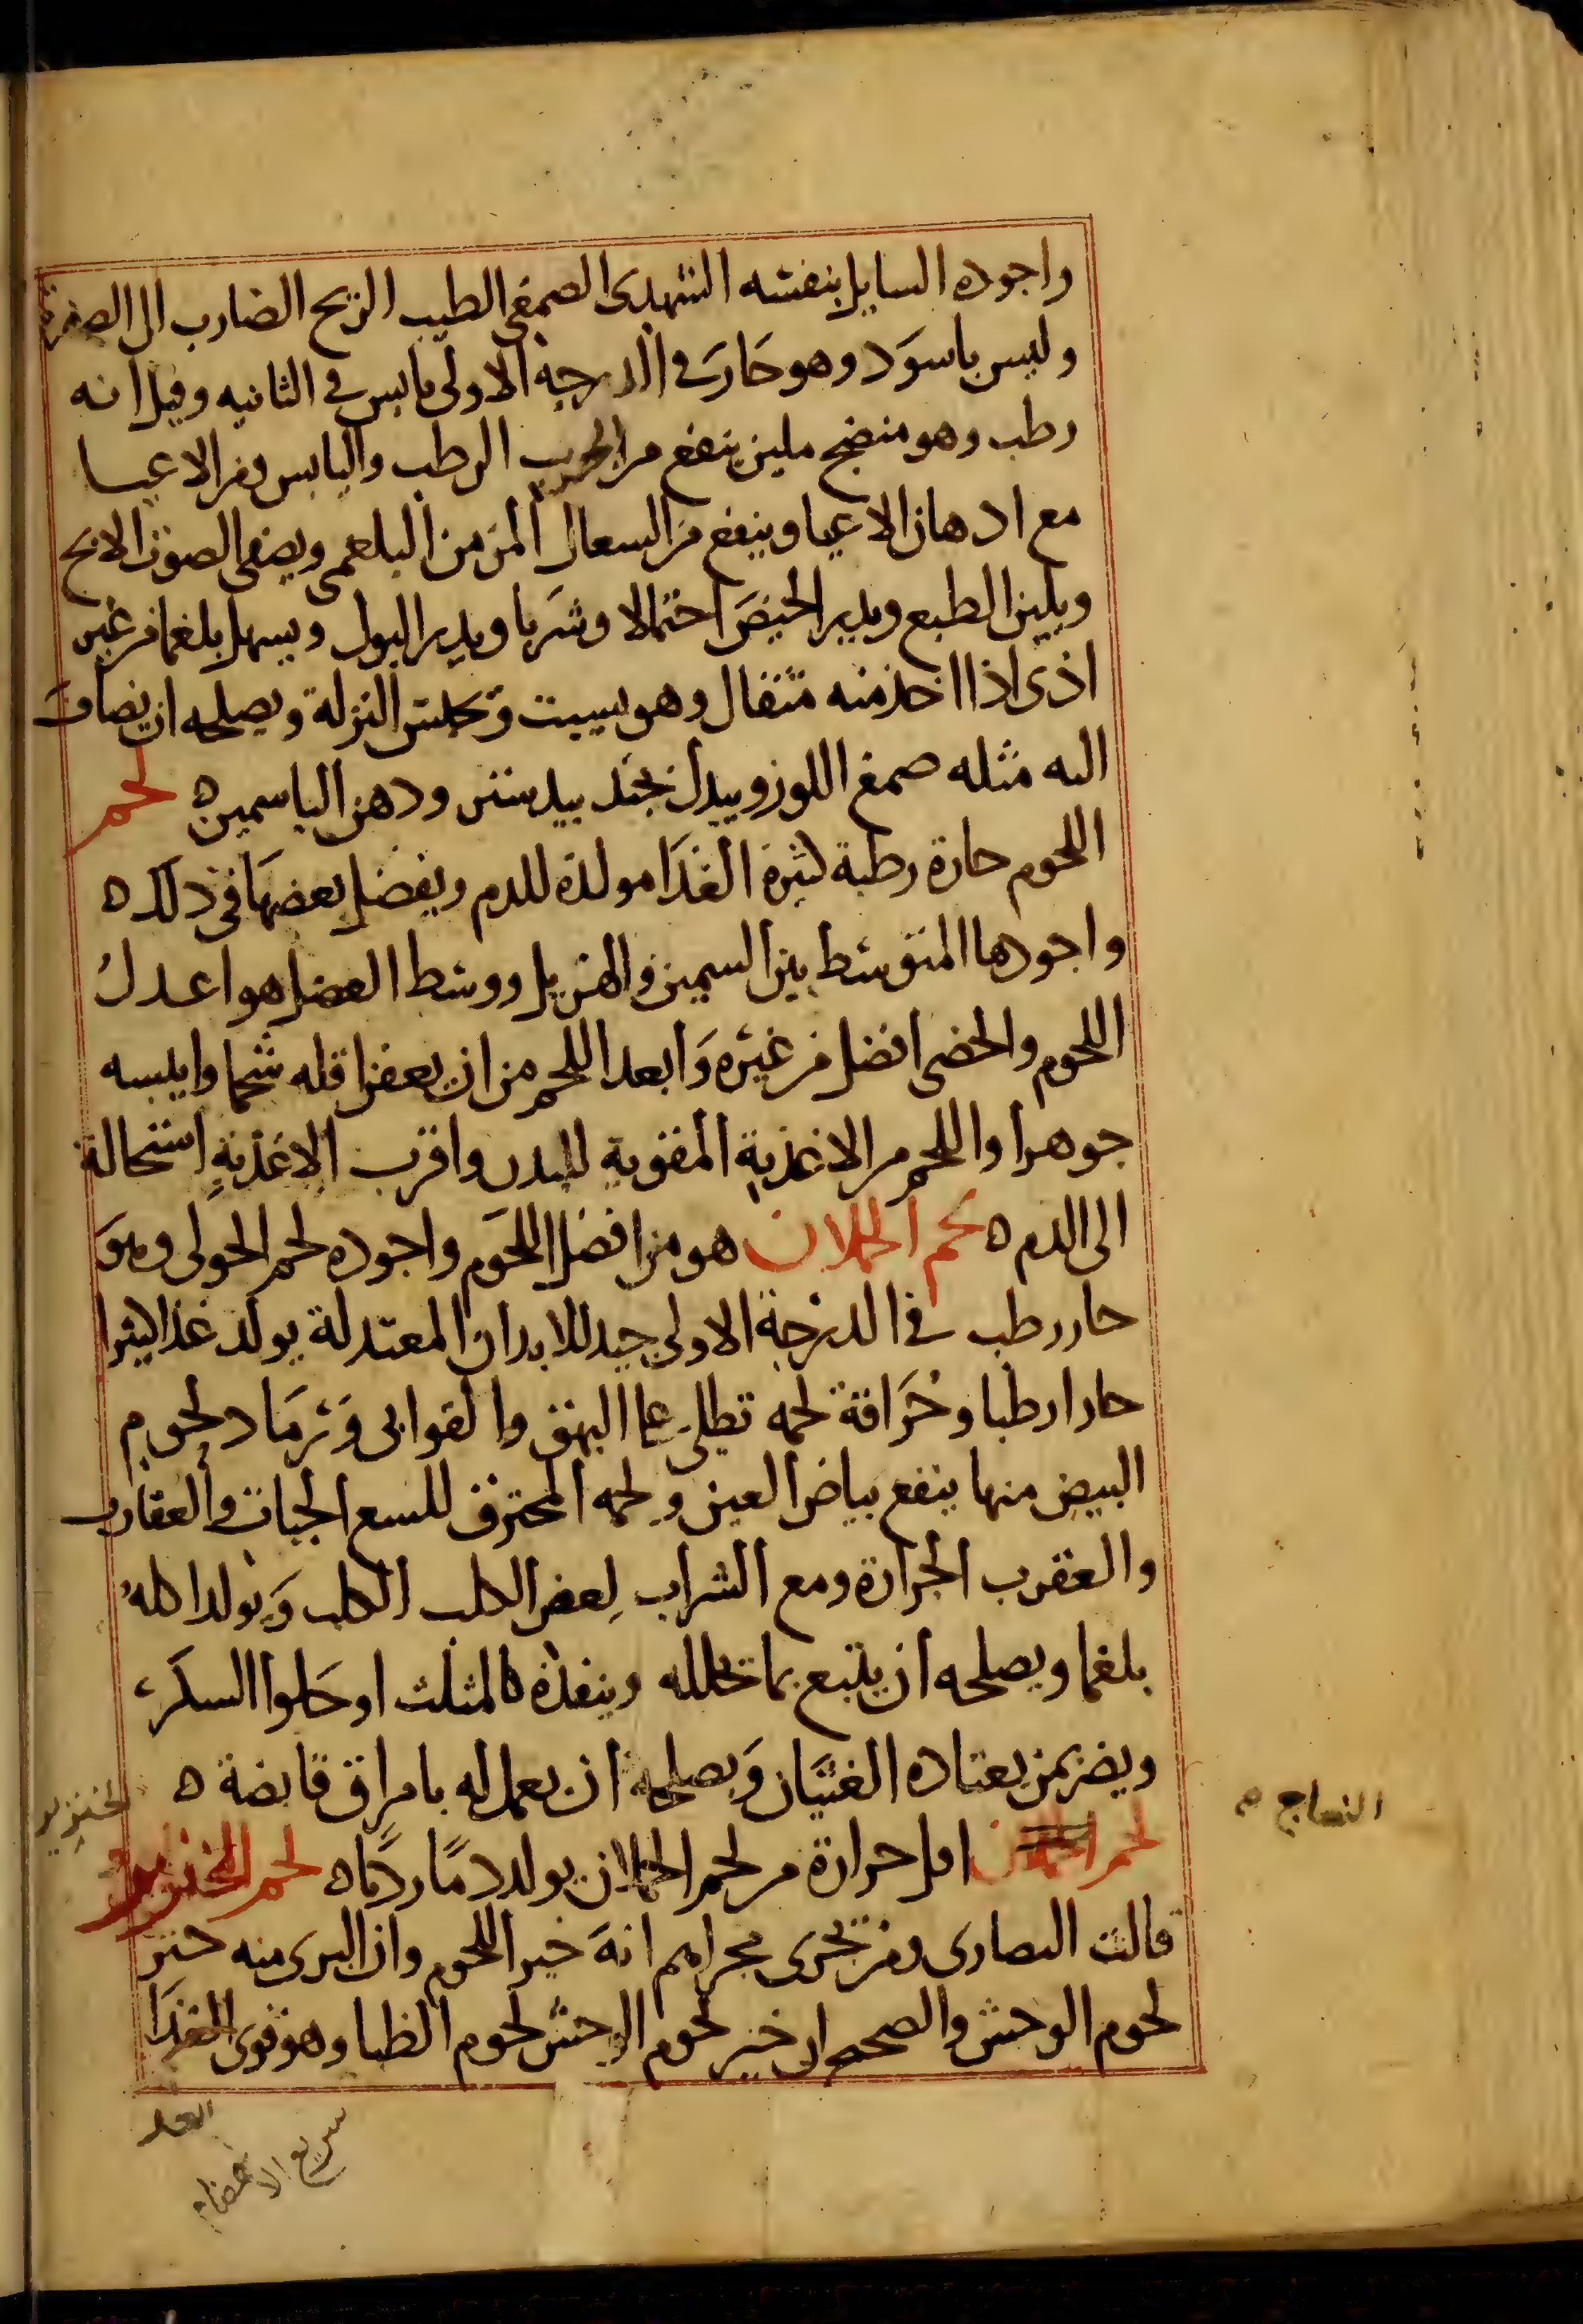 واجوده السايل بنفسه الشهدى الصمغى الطيب الريح الضارب الى الصفرة
وليس باسود وهو حار فى الدرجة الاولى يابس فى الثانيه وقيل انه
رطب وهو منضج ملين ينفع من الجرب الرطب واليابس ومن الاعيا
مع ادهان الاعيا وينفع من السعال المزمن البلغمى ويصفى الصوت الابح
ويلين الطبع ويدير الحيض احتمالا وشربا ويدير البول ويسهل بلغما من غير
اذى اذا اخذ منه مثقال وهو يسبت النزلة ويصلحه ان يضاف
اليه مثله صمغ اللوز ويبدل بجند بيدستر ودهن الياسمين ه لحم
اللحوم حارة رطبة كثيرة الغذا مولدة للدم ويفضل بعضها فى ذلك ه
واجودها المتوسط بين السمين والهزيل ووسط العضل هو اعدل
اللحوم والخصى افضل من غيره وابعد اللحم من ان يعفن اقله شحما وايبسه
جوهرا واللحم من الاغذية المقوية للبدن واقرب الاغذية استحالة
الى الدم ه لحم الحملان هو من افضل اللحوم واجوده لحم الحولى وهو
حار رطب فى الدرجة الاولى جيد للابدان المعتدلة يولد غذا كثيرا
حارا رطبا وحراقة لحمه تطلى على البهق والقوابى ورماد لحوم
البيض منها ينفع بياض العين ولحمه المحترق للسع الحيات والعقارب
والعقرب الجرارة ومع الشراب لعض الكلب الكلب ويولد اكله
بلغما ويصلحه ان يتبع بما يحلله وينفذه كالمثلث او حلوا السكر
ويضر بمن يعتاده الغثيان ويصلحه ان يعمل له بامراق قابضة ه
لحم اقل حرارة من لحم الحملان يولد دما رديا ه لحم الخنزير
النعاج م
الخنزير
قالت النصارى ومن يجرى مجراهم انه خير اللحوم وان البرى منه خير
لحوم الوحش والصحيح ان خير لحوم الوحش لحوم الظبا وهو قوى الغذا
سريع الانهضام